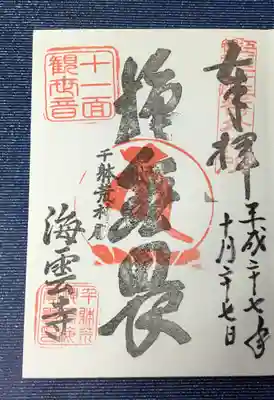 奉拝
平成二十七年
十月二十七日
施無畏
千躰荒神尊
十一面
観世音
海雲寺